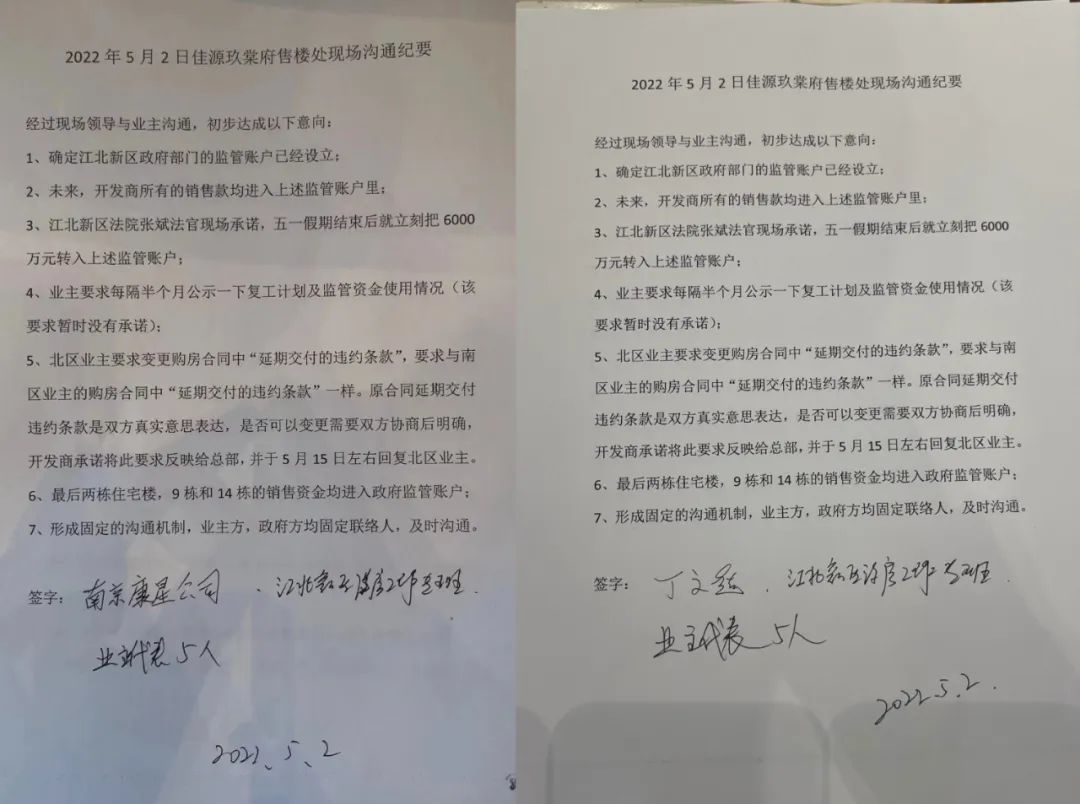 2022 年 5 月 2 日佳源玖棠府售楼处现场沟通纪要
经过现场领导与业主沟通，初步达成以下意向：
1、确定江北新区政府部门的监管账户已经设立；
2、未来，开发商所有的销售款均进入上述监管账户里；
3、江北新区法院张斌法官现场承诺，五一假期结束后就立刻把 6000
万元转入上述监管账户；
4、业主要求每隔半个月公示一下复工计划及监管资金使用情况（该
要求暂时没有承诺）；
5、北区业主要求变更购房合同中“延期交付的违约条款”，要求与南
区业主的购房合同中“延期交付的违约条款”一样。原合同延期交付
违约条款是双方真实意思表达，是否可以变更需要双方协商后明确，
开发商承诺将此要求反映给总部，并于 5 月 15 日左右回复北区业主。
6、最后两栋住宅楼，9 栋和 14 栋的销售资金均进入政府监管账户；
7、形成固定的沟通机制，业主方，政府方均固定联络人，及时沟通。
签字：南京康星公司、江北新区房工作专班
业主代表 5人
2022、5、2
2022 年 5 月 2 日佳源玖棠府售楼处现场沟通纪要
经过现场领导与业主沟通，初步达成以下意向：
1、确定江北新区政府部门的监管账户已经设立；
2、未来，开发商所有的销售款均进入上述监管账户里；
3、江北新区法院张斌法官现场承诺，五一假期结束后就立刻把 6000
万元转入上述监管账户；
4、业主要求每隔半个月公示一下复工计划及监管资金使用情况（该
要求暂时没有承诺）；
5、北区业主要求变更购房合同中“延期交付的违约条款”，要求与南
区业主的购房合同中“延期交付的违约条款”一样。原合同延期交付
违约条款是双方真实意思表达，是否可以变更需要双方协商后明确，
开发商承诺将此要求反映给总部，并于 5 月 15 日左右回复北区业主。
6、最后两栋住宅楼，9 栋和 14 栋的销售资金均进入政府监管账户；
7、形成固定的沟通机制，业主方，政府方均固定联络人，及时沟通。
签字：丁文、江北新区房工作专班
业主代表 5人
2022.5.2.